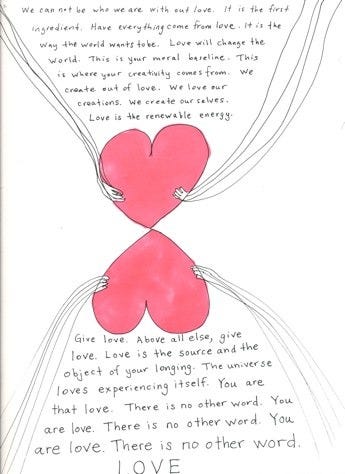 We can not be who we are with out love. It is the first
ingredient. Have everything come from love. It is the
way the world wants to be. Love will change the
world. This is your moral baseline. This
is where your creativity comes from. We
create out of love. We love our
creations. We create our selves.
Love is the renewable energy.
Give love. Above all else, give
love. Love is the source and the
object of your longing. The universe
loves experiencing itself. You are
that love. There is no other word. You
are love. There is no other word. You
are love. There is no other word.
LOVE